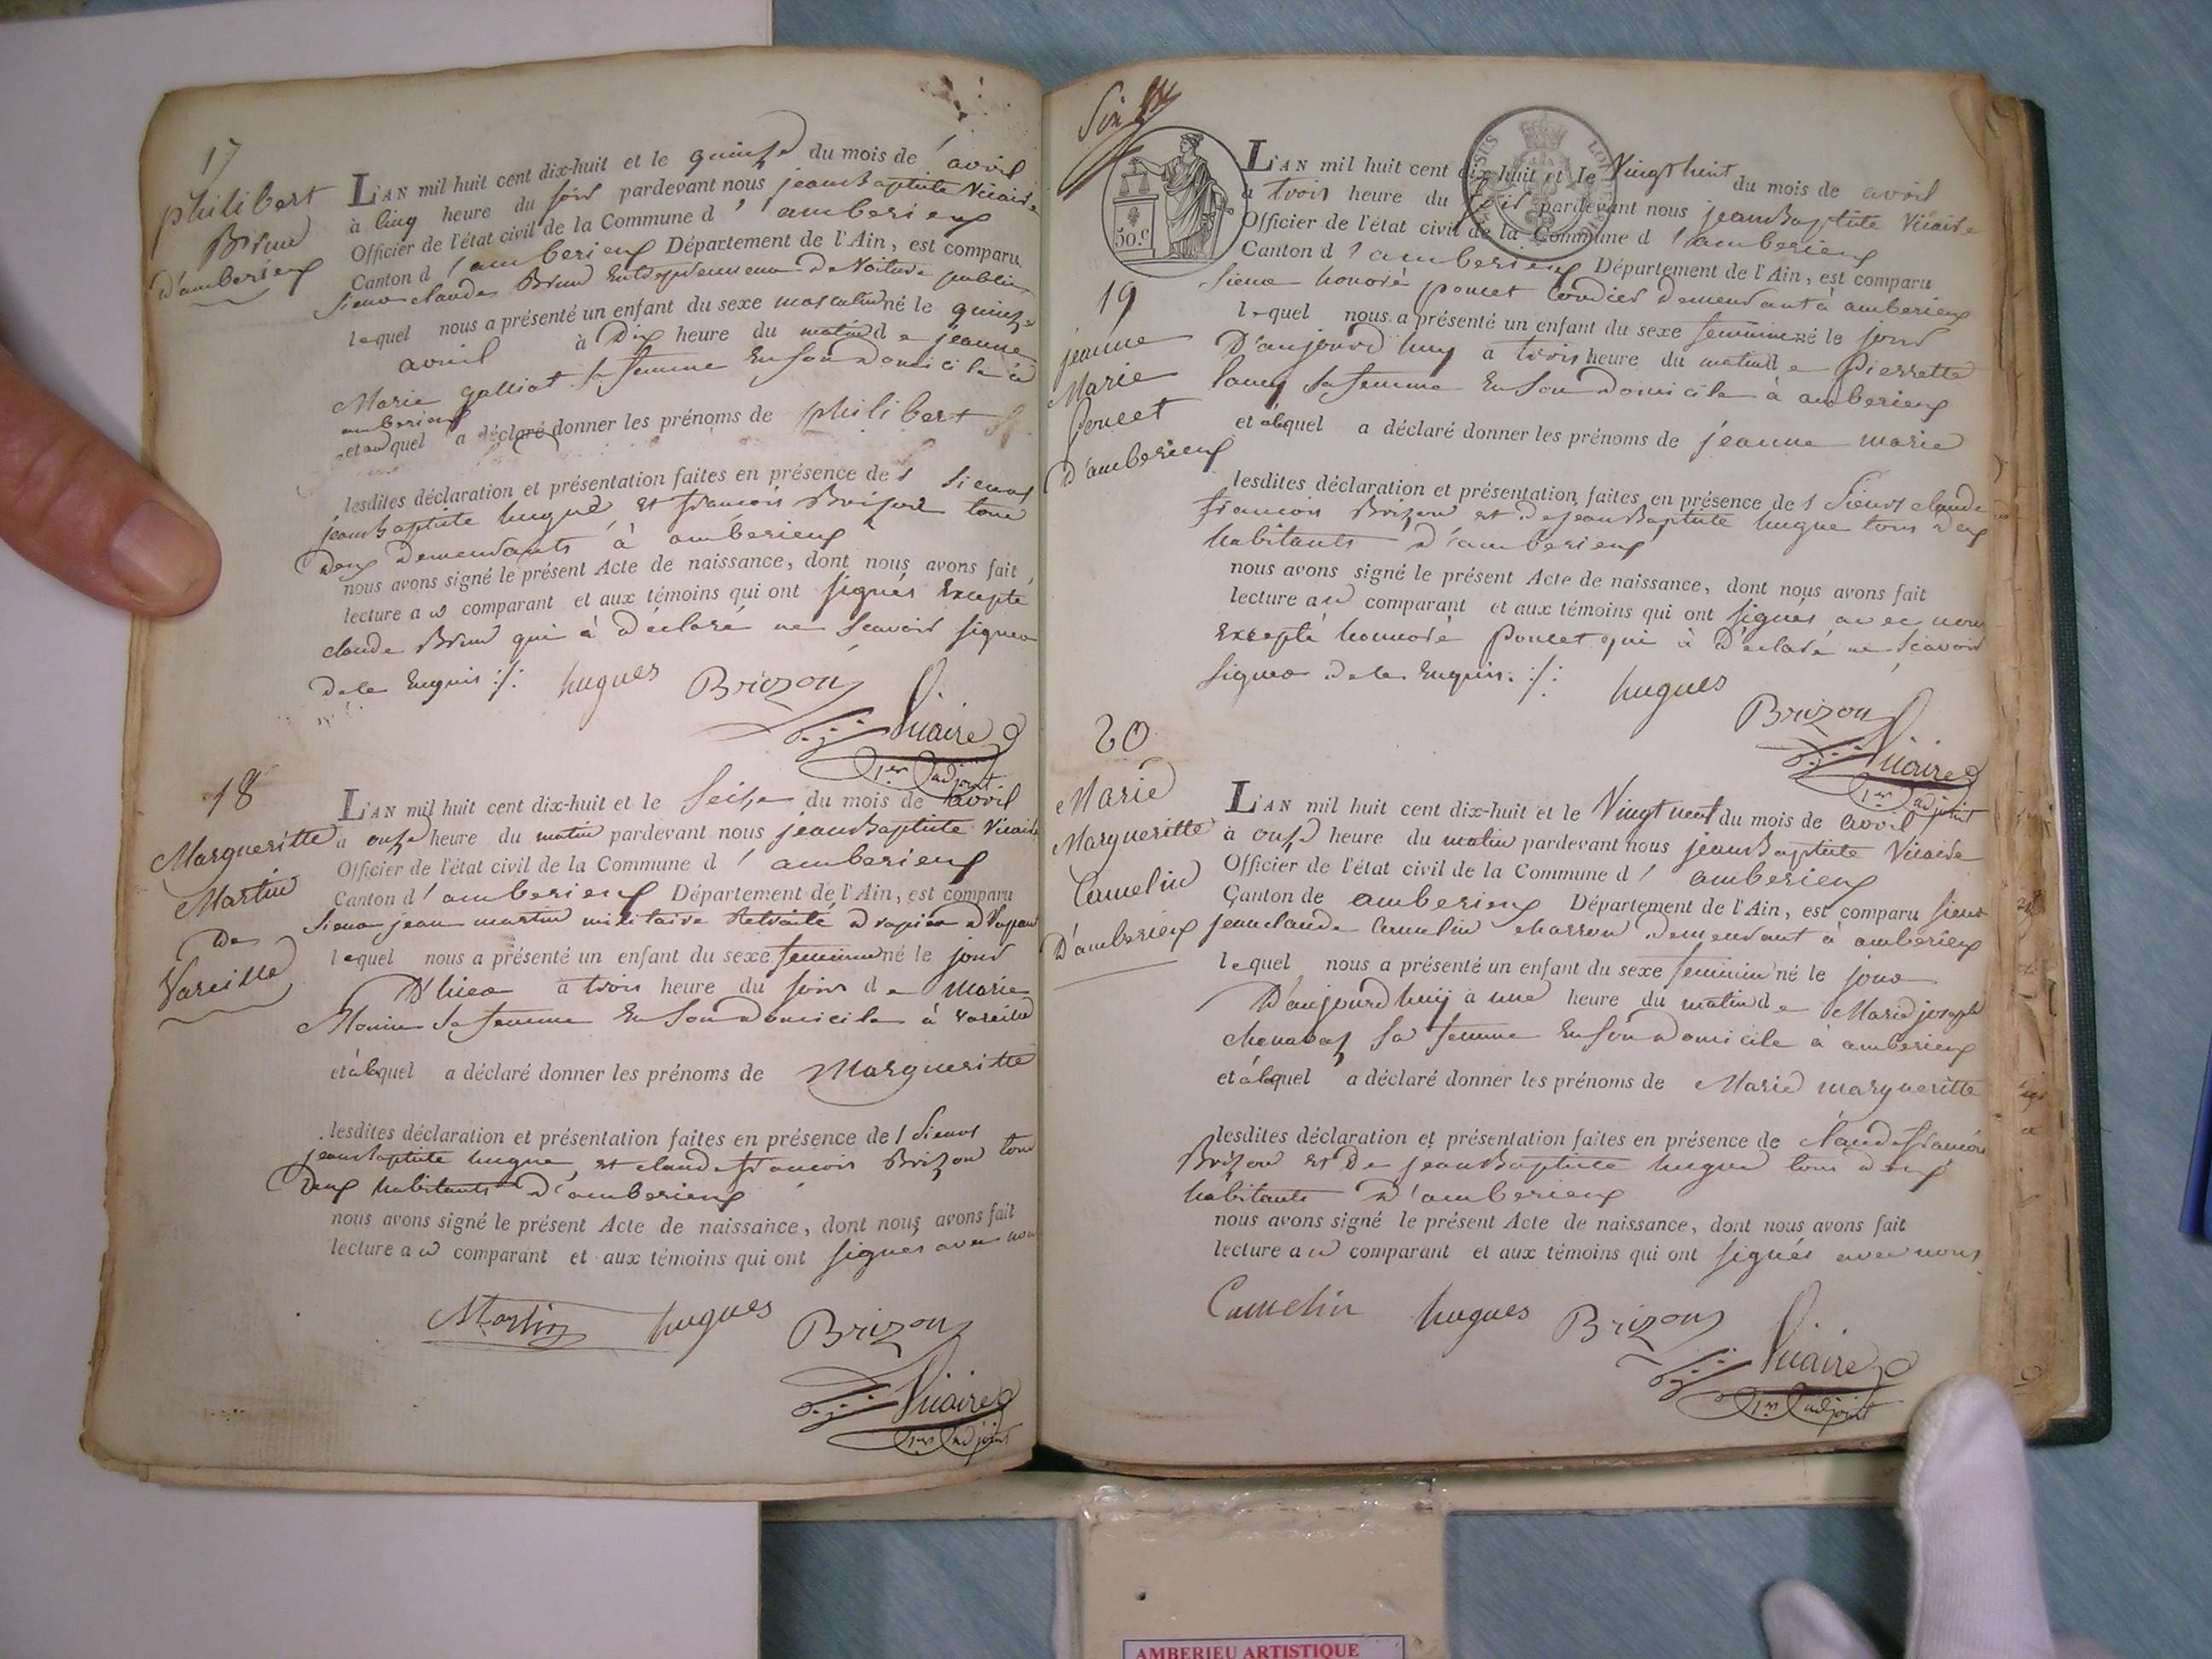 17
philibert
Brun
d'amberieux
L'AN mil huit cent dix-huit et le quinze du mois de avril
à cinq heure du soir pardevant nous jean Baptiste Vicaire
Officier de l'état civil de la Commune d'amberieux
Canton d'amberieux Département de l'Ain, est comparu
sieur claude Brun Entrepreneur de Voiture public
lequel nous a présenté un enfant du sexe masculin né le quinze
avril à Dix heure du matin de jeanne
Marie galliat sa femme En son Domicile à
amberieux
et auquel a déclaré donner les prénoms de philibert
lesdites déclaration et présentation faites en présence des sieurs
jean Baptiste hugue et francois Brizon tous
Deux Demeurants à amberieux
nous avons signé le présent Acte de naissance, dont nous avons fait
lecture au comparant et aux témoins qui ont signés Excepté
claude Brun qui à déclaré ne scavoir signer
De le Enquis :/:
hugues Brizon
Vicaire
1er adjoint
18
Margueritte
Martin
De
Vareille
L'AN mil huit cent dix-huit et le seize du mois de avril
à onze heure du matin pardevant nous jean Baptiste Vicaire
Officier de l'état civil de la Commune d'amberieux
Canton d'amberieux Département de l'Ain, est comparu
sieur jean martin militaire Retraité
lequel nous a présenté un enfant du sexe feminin né le jour
D'hier à trois heure du soir de Marie
Monin sa femme En son Domicile à vareille
et àlaquel a déclaré donner les prénoms de Margueritte
lesdites déclaration et présentation faites en présence des sieurs
jean Baptiste hugue, et claude francois Brizon tous
Deux habitants D'amberieux
nous avons signé le présent Acte de naissance, dont nous avons fait
lecture au comparant et aux témoins qui ont signés avec nous
Martin hugues Brizon
Vicaire
1er adjoint
Six
50.c
19
jeanne
Marie
Poncet
D'amberieux
L'AN mil huit cent dix-huit et le Vingt huit du mois de avril
à trois heure du soir pardevant nous jean Baptiste Vicaire
Officier de l'état civil de la Commune d'amberieux
Canton d'amberieux Département de l'Ain, est comparu
sieur honoré poncet Cordier Demeurant à amberieux
lequel nous a présenté un enfant du sexe feminin né le jour
D'aujourd'huy à trois heure du matin de Pierrette
sa femme En son Domicile à amberieux
et àlaquel a déclaré donner les prénoms de jeanne marie
lesdites déclaration et présentation faites en présence des sieurs claude
francois Brizon et de jean Baptiste hugue tous deux
habitants D'amberieux
nous avons signé le présent Acte de naissance, dont nous avons fait
lecture au comparant et aux témoins qui ont signés avec nous
Excepté honnoré Poncet qui à Déclaré ne scavoir
signer De le Enquis. :/:
hugues
Brizon
Vicaire
1er adjoint
20
Marie
Margueritte
Camelin
D'amberieux
L'AN mil huit cent dix-huit et le Vingt neuf du mois de avril
à onze heure du matin pardevant nous jean Baptiste Vicaire
Officier de l'état civil de la Commune d' amberieux
Canton de amberieux Département de l'Ain, est comparu sieur
jean claude Camelin charron Demeurant à amberieux
lequel nous a présenté un enfant du sexe feminin né le jour
D'aujourd'huy à une heure du matin de Marie joseph
sa femme En son Domicile à amberieux
et àlaquel a déclaré donner les prénoms de Marie margueritte
lesdites déclaration et présentation faites en présence de claude francois
Brizon et De jean Baptiste hugue tous deux
habitants D'amberieux
nous avons signé le présent Acte de naissance, dont nous avons fait
lecture au comparant et aux témoins qui ont signés avec nous
Camelin hugues Brizon
Vicaire
1er adjoint
AMBERIEU ARTISTIQUE